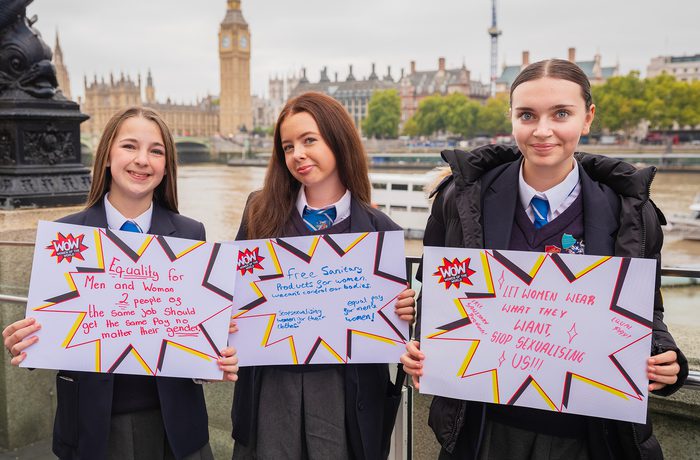 WOW
Equality for
Men and Woman
2 people of
the same Job should
get the same Pay no
matter their gender.
WOW
Free Sanitary
Products for women
we can't control our bodies.
Stop sexualising
women for their
clothes
equal pay
for men &
women!
WOW
LET WOMEN WEAR
WHAT THEY
WANT,
STOP SEXUALISING
US!!!
EQUAL
PAY!